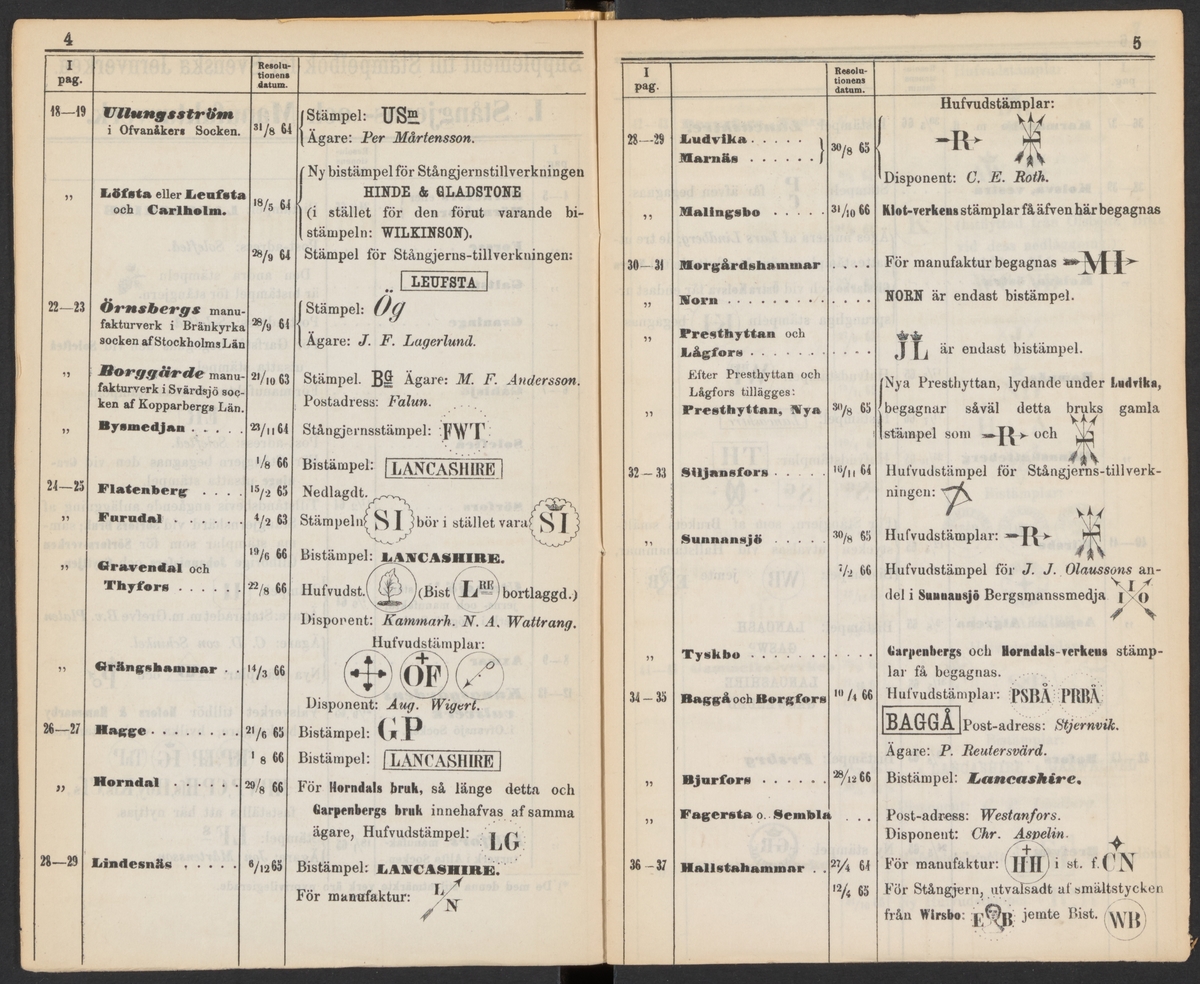 4
I pag.
Resolu-
tionens
datum.
18—19 Ullungsström
i Ofvanåkers Socken.
31/8 64
Stämpel: USm
Ägare: Per Mårtensson.
„ Löfsta eller Leufsta
och Carlholm.
18/5 64
Ny bistämpel för Stångjernstillverkningen
HINDE & GLADSTONE
(i stället för den förut varande bi-
stämpeln: WILKINSON).
28/9 64 Stämpel för Stångjerns-tillverkningen:
LEUFSTA
22—23 Örnsbergs manu-
fakturverk i Bränkyrka
socken af Stockholms Län
28/9 64
Stämpel: Ög
Ägare: J. F. Lagerlund.
„ Borggärde manu-
fakturverk i Svärdsjö soc-
ken af Kopparbergs Län.
21/10 63 Stämpel. BG Ägare: M. F. Andersson.
Postadress: Falun.
„ Bysmedjan . . . . . 23/11 64 Stångjernsstämpel: FWT
1/8 66 Bistämpel: LANCASHIRE
24—25 Flatenberg . . . . 15/2 65 Nedlagdt.
„ Furudal . . . . . . . 4/2 63 Stämpeln SI bör i stället vara SI
19/6 66 Bistämpel: LANCASHIRE.
„ Gravendal och
Thyfors . . . . . . 22/8 66 Hufvudst. (Bist LRE bortlaggd.)
Disponent: Kammarh. N. A. Wattrang.
Hufvudstämplar:
„ Grängshammar . . 14/3 66
OF
Disponent: Aug. Wigert.
26—27 Hagge . . . . . . . . 21/6 65 Bistämpel: GP
1 8 66 Bistämpel: LANCASHIRE
„ Horndal . . . . . . . 29/8 66 För Horndals bruk, så länge detta och
Garpenbergs bruk innehafvas af samma
ägare, Hufvudstämpel: LG
28—29 Lindesnäs . . . . . 6/12 65 Bistämpel: LANCASHIRE.
För manufaktur: L N
5
I pag.
Resolu-
tionens
datum.
Hufvudstämplar:
28—29 Ludvika . . . . .
Marnäs . . . . . .
30/8 65
R L
Disponent: C. E. Roth.
„ Malingsbo . . . . . 31/10 66 Klot-verkens stämplar få äfven här begagnas
30—31 Morgårdshammar . . . . För manufaktur begagnas MI
„ Norn . . . . . . . . . . NORN är endast bistämpel.
„ Presthyttan och
Lågfors . . . . . . . . . . JL är endast bistämpel.
Efter Presthyttan och
Lågfors tillägges:
„ Presthyttan, Nya 30/8 65
Nya Presthyttan, lydande under Ludvika,
begagnar såväl detta bruks gamla
stämpel som R och L
32—33 Siljansfors . . . . . 16/11 64 Hufvudstämpel för Stångjerns-tillverk-
ningen:
„ Sunnansjö . . . . . 30/8 65 Hufvudstämplar: R L
7/2 66 Hufvudstämpel för J. J. Olaussons an-
del i Sunnansjö Bergsmanssmedja I I O
„ Tyskbo . . . . . . . . . . Garpenbergs och Horndals-verkens stämp-
lar få begagnas.
34—35 Baggå och Borgfors 10/4 66 Hufvudstämplar: PSBÅ PRBÄ
BAGGÅ Post-adress: Stjernvik.
Ägare: P. Reutersvärd.
„ Bjurfors . . . . . . 28/12 66 Bistämpel: Lancashire.
„ Fagersta o. Sembla . . . Post-adress: Westanfors.
Disponent: Chr. Aspelin.
36—37 Hallstahammar . . 27/4 64 För manufaktur: HH i st. f. CN
12/4 65 För Stångjern, utvalsadt af smältstycken
från Wirsbo: E B jemte Bist. WB